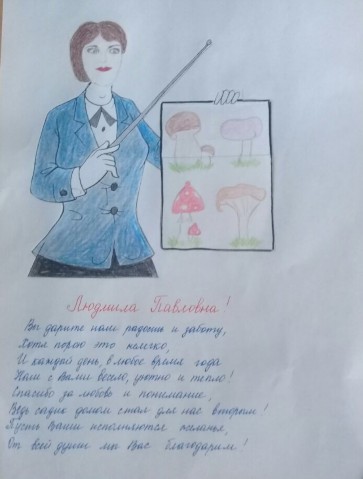 Людмила Павловна!
Вы дарите нам радость и заботу,
Хотя порою это нелегко,
И каждый день, в любое время года
Нам с Вами весело, уютно и тепло!
Спасибо за любовь и понимание,
Ведь садик домом стал для нас вторым!
Пусть Ваши исполняются желанья,
От всей души мы Вас благодарим!